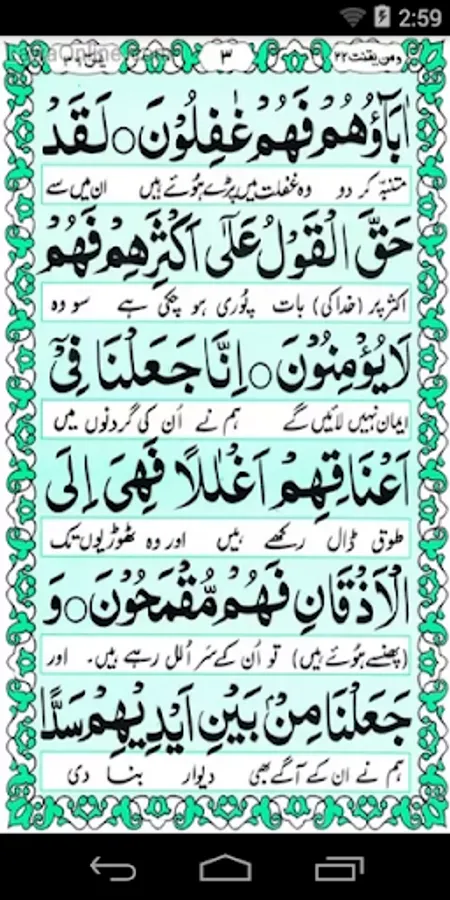 2:59
ومن یقنت ٢٢
٣
یٰسٓ ٣٦
اٰبَآؤُهُمْ فَهُمْ غٰفِلُوْنَ ○ لَقَدْ
متنبہ کر دو وہ غفلت میں پڑے ہوئے ہیں ان میں سے
حَقَّ الْقَوْلُ عَلٰٓى اَكْثَرِهِمْ فَهُمْ
اکثر پر (خدا کی) بات پوری ہو چکی ہے سو وہ
لَا يُؤْمِنُوْنَ ○ اِنَّا جَعَلْنَا فِيْٓ
ایمان نہیں لائیں گے ہم نے اُن کی گردنوں میں
اَعْنَاقِهِمْ اَغْلٰلًا فَهِىَ اِلَى
طوق ڈال رکھے ہیں اور وہ ٹھوڑیوں تک
الْاَذْقَانِ فَهُمْ مُّقْمَحُوْنَ ○ وَ
(پھنسے ہوئے ہیں) تو اُن کے سر اُلل رہے ہیں۔ اور
جَعَلْنَا مِنْۢ بَيْنِ اَيْدِيْهِمْ سَدًّا
ہم نے ان کے آگے بھی دیوار بنا دی